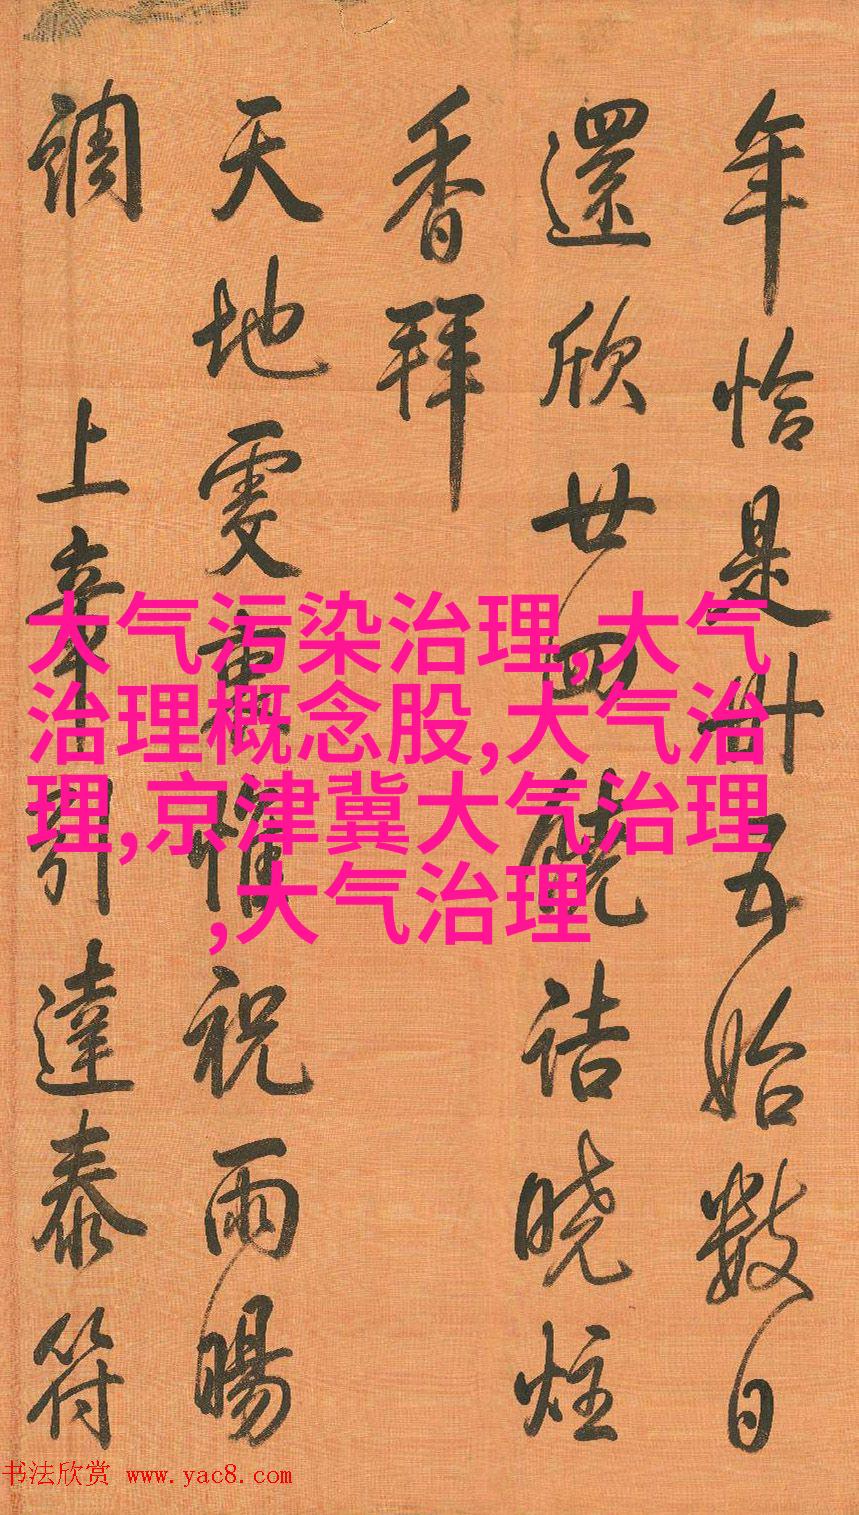 年恰是卅五始數日
還欣廿四饒詰曉炷
香拜
天地雯惟祝雨暘
調上辛引達泰符
大气污染治理,大气
治理概念股,大气治
理,京津冀大气治理
,大气治理
书法欣赏 www.yac8.com